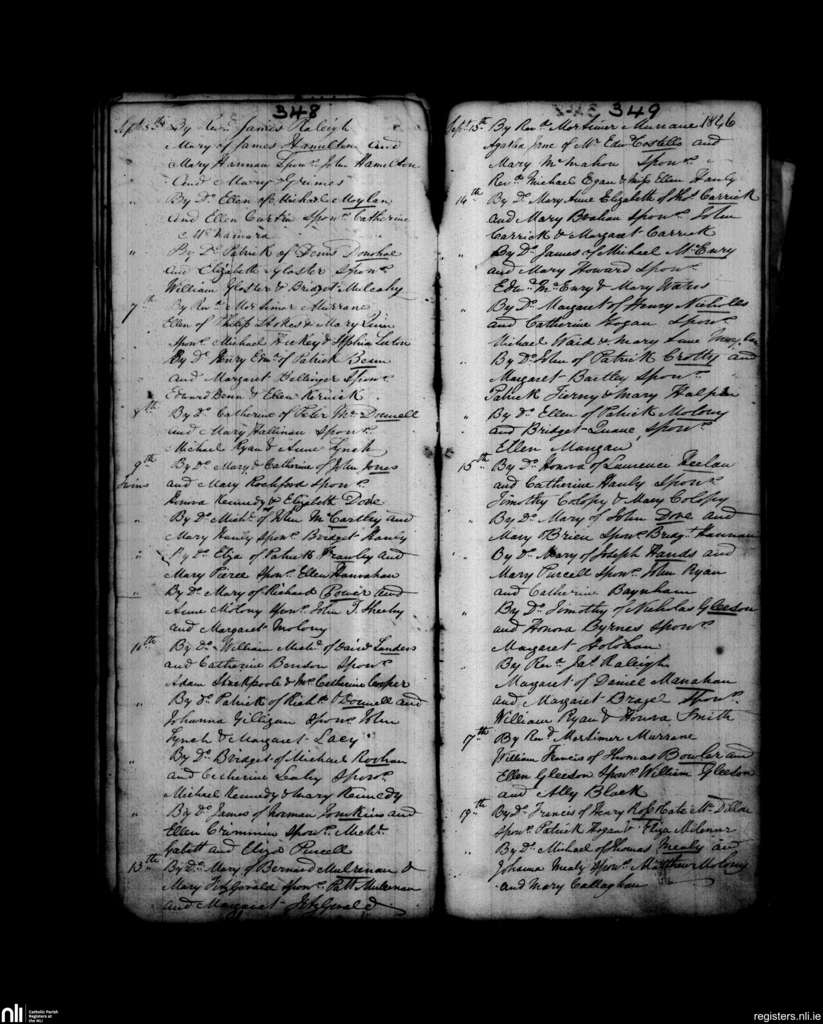 348
Sept. 5th By Revd. James Raleigh
Mary of James Hamilton and
Mary Hannan Sponrs. John Hamilton
and Mary Grimes
" By Do. Ellen of Michael Moylan
and Ellen Curtin Sponrs. Catherine
McNamara
" By Do. Patrick of Denis Donohoe
and Elizabeth Gloster Sponrs.
William Gloster & Bridget Mulcahy
7th By Revd. Mortimer Murrane
Ellen of Philip Stokes & Mary Quin
Sponrs. Michael Hickey & Sophia
By Do. Henry Edmd. of Patrick Benn
and Margaret Bellinger Sponrs.
Edward Benn & Ellen
8th By Do. Catherine of Peter McDonnell
and Mary Hallinan Sponrs.
Michael Ryan & Anne Lynch
9th By Do. Mary & Catherine of John Jones
Twins and Mary Rochford Sponrs.
Honora Kennedy & Elizabeth Dode
" By Do. Michl. of John McCartley and
Mary Hanly Sponrs. Bridget Hanly
" By Do. Eliza of Patrick Frawley and
Mary Pierce Sponr. Ellen Hanrahan
" By Do. Mary of Richard Power and
Anne Molony Sponrs. John T. Sheehy
and Margaret Molony
10th By Do. William Michl. of David Landers
and Catherine Benson Sponrs.
Adam Stackpoole & Mrs. Catherine Cooper
" By Do. Patrick of Richd. O'Donnell and
Johanna Gilligan Sponrs. John
Lynch & Margaret Lacy
" By Do. Bridget of Michael Roohan
and Catherine Leahy Sponrs.
Michael Kennedy & Mary Kennedy
" By Do. James of Norman Tomkins and
Ellen Crimmin Sponrs. Michl.
Galett and Eliza Purcell
13th By Do. Mary of Bernard Mulrenan &
Mary FitzGerald Sponrs. Patt Mulrenan
and Margaret FitzGerald
349
Sept. 13th By Revd. Mortimer Murrane 1846
Agatha Jane of Mr. Edwd. Costello and
Mary McMahon Sponrs.
Revd. Michael Egan & Miss Ellen Hanly
14th By Do. Mary Anne Elizabeth of Thos. Carrick
and Mary Boohan Sponrs. John
Carrick & Margaret Carrick
" By Do. James of Michael McEnry
and Mary Howard Sponrs.
Edwd. McEnry & Mary Waters
" By Do. Margaret of Henry Nicholls
and Catherine Hogan Sponrs.
Michael Waid & Mary Anne
" By Do. John of Patrick Crotty and
Margaret Bartley Sponrs.
Patrick Tierny & Mary Halpin
" By Do. Ellen of Patrick Molony
and Bridget Quane, Sponr.
Ellen Mangan
15th By Do. Honora of Laurence Feelan
and Catherine Hanly Sponrs.
Timothy Colopy & Mary Colopy
" By Do. Mary of John Dore and
Mary Brien Sponr. Bridgt. Hannan
By Do. Mary of Joseph Hands and
Mary Purcell Sponrs. John Ryan
and Catherine Baynham
" By Do. Timothy of Nicholas Gleeson
and Honora Byrnes Sponr.
Margaret Holohan
" By Revd. Jas. Raleigh
Margaret of Daniel Manahan
and Margaret Brazel Sponrs.
William Ryan & Honora Smith
17th By Revd. Mortimer Murrane
William Francis of Thomas Bowler and
Ellen Gleeson Sponrs. William Gleeson
and Ally Black
19th By Do. Francis of Henry Ross & Cate McDillon
Sponrs. Patrick Hogan & Eliza
" By Do. Michael of Thomas Mealy and
Johana Mealy Sponrs. Matthew Molony
and Mary Callaghan
nli
Catholic Parish
Registers at
the NLI
registers.nli.ie